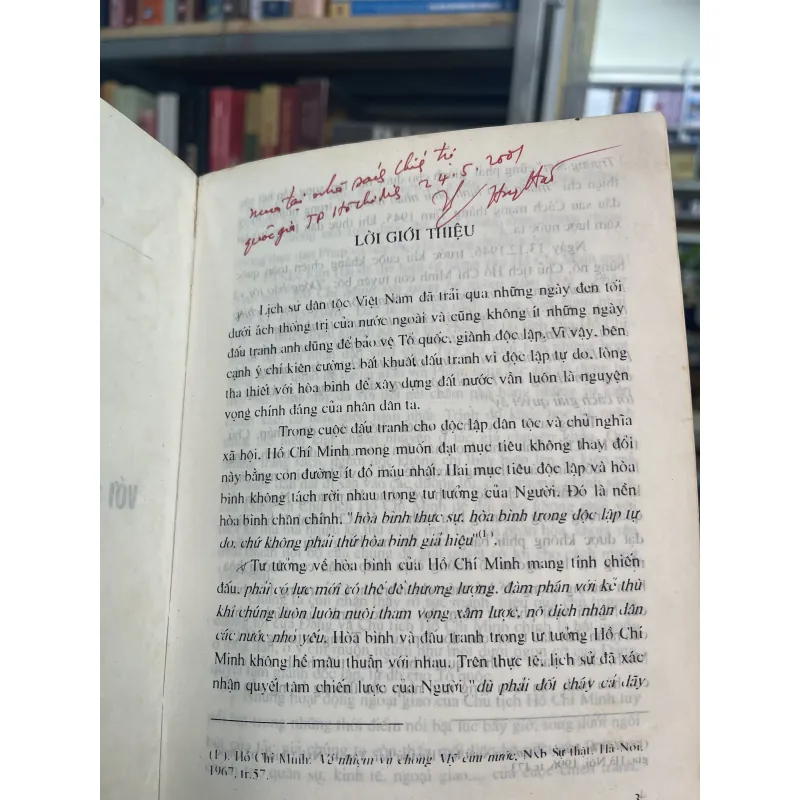 mua tại nhà sách Chính trị
quốc gia TP Hồ Chí Minh 24.5.2001
LỜI GIỚI THIỆU
Lịch sử dân tộc Việt Nam đã trải qua những ngày đen tối
dưới ách thống trị của nước ngoài và cũng không ít những ngày
đấu tranh anh dũng để bảo vệ Tổ quốc, giành độc lập. Vì vậy, bên
cạnh ý chí kiên cường, bất khuất đấu tranh vì độc lập tự do, lòng
tha thiết với hòa bình để xây dựng đất nước vẫn luôn là nguyện
vọng chính đáng của nhân dân ta.
Trong cuộc đấu tranh cho độc lập dân tộc và chủ nghĩa
xã hội, Hồ Chí Minh mong muốn đạt mục tiêu không thay đổi
này bằng con đường ít đổ máu nhất. Hai mục tiêu độc lập và hòa
bình không tách rời nhau trong tư tưởng của Người. Đó là nền
hòa bình chân chính, "hòa bình thực sự, hòa bình trong độc lập tự
do, chứ không phải thứ hòa bình giả hiệu"(1).
Tư tưởng về hòa bình của Hồ Chí Minh mang tính chiến
đấu, phải có lực mới có thể để thương lượng, đàm phán với kẻ thù
khi chúng luôn luôn nuôi tham vọng xâm lược, nô dịch nhân dân
các nước nhỏ yếu. Hòa bình và đấu tranh trong tư tưởng Hồ Chí
Minh không hề mâu thuẫn với nhau. Trên thực tế, lịch sử đã xác
nhận quyết tâm chiến lược của Người "dù phải đốt cháy cả dãy
(1). Hồ Chí Minh: Về nhiệm vụ chống Mỹ cứu nước, Nxb Sự thật, Hà Nội,
1967, tr.57.
3
VỚI